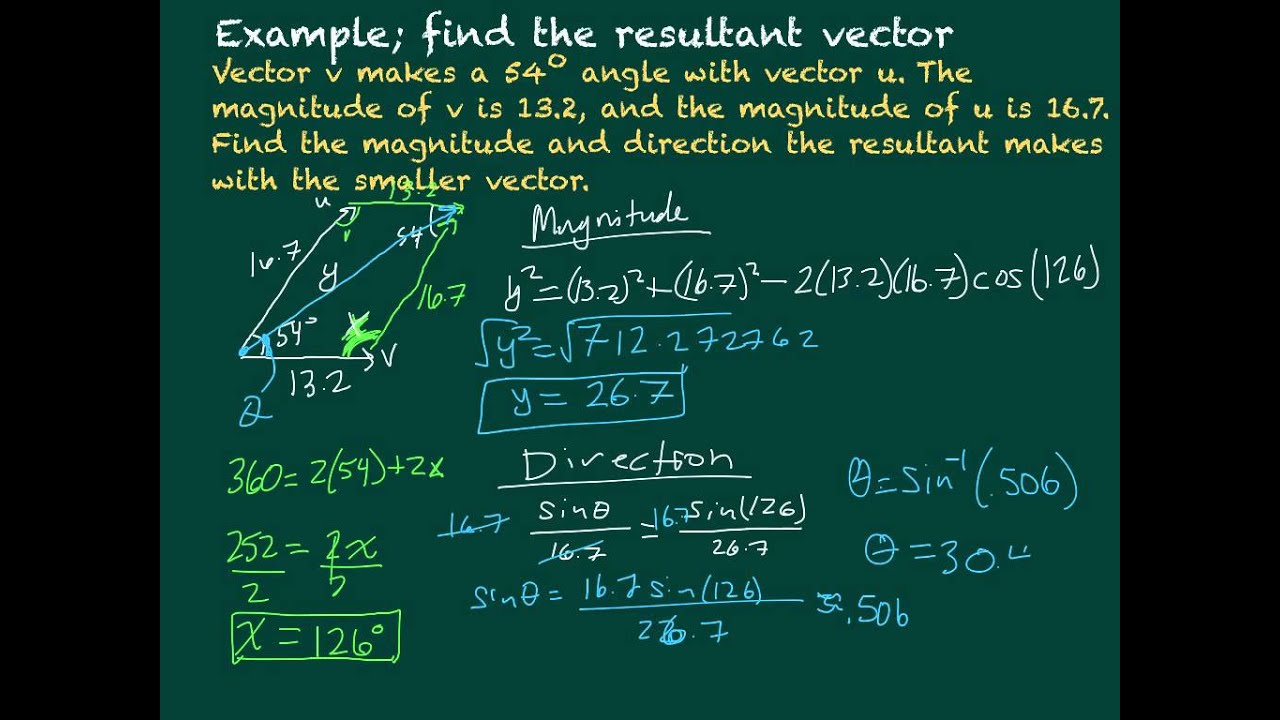 Example; find the resultant vector
Vector v makes a 54° angle with vector u. The
magnitude of v is 13.2, and the magnitude of u is 16.7.
Find the magnitude and direction the resultant makes
with the smaller vector.
u
13.2
16.7
y
54
16.7
54°
x
v
13.2
θ
Magnitude
y² = (13.2)² + (16.7)² - 2(13.2)(16.7) cos(126)
√y² = √712.272762
y = 26.7
360 = 2(54) + 2x
252/2 = 2x/2
x = 126°
Direction
16.7 sinθ/16.7 = 16.7 sin(126)/26.7
sinθ = 16.7 sin(126)/26.7 = .506
θ = sin⁻¹(.506)
θ = 30.4